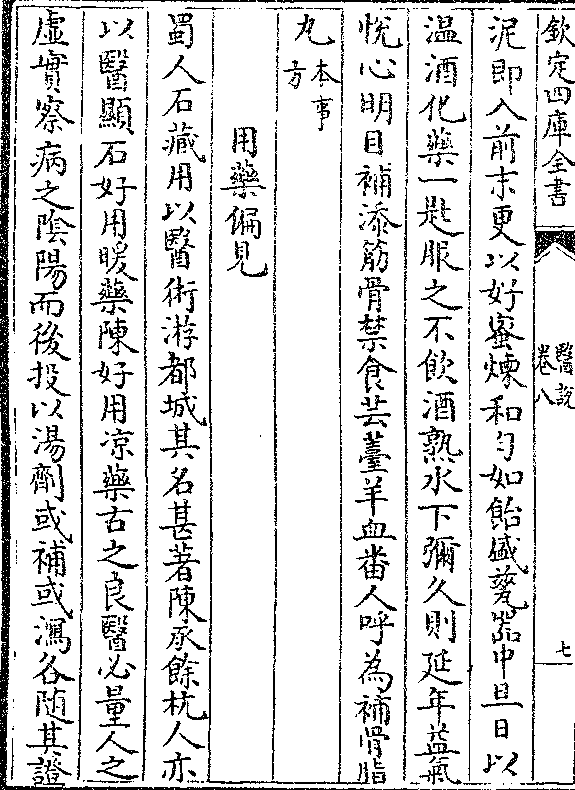 欽定四庫全書
醫說
卷八
七
泥即入前末更以好蜜煉和勻如飴盛甆器中旦日以
温酒化藥一匙服之不飲酒熟水下彌久則延年益氣
悦心明目補添筋骨禁食芸薹羊血番人呼為補骨脂
丸本事方
用藥偏見
蜀人石藏用以醫術游都城其名甚著陳承餘杭人亦
以醫顯石好用暖藥陳好用凉藥古之良醫必量人之
虚實察病之陰陽而後投以湯劑或補或瀉各隨其證